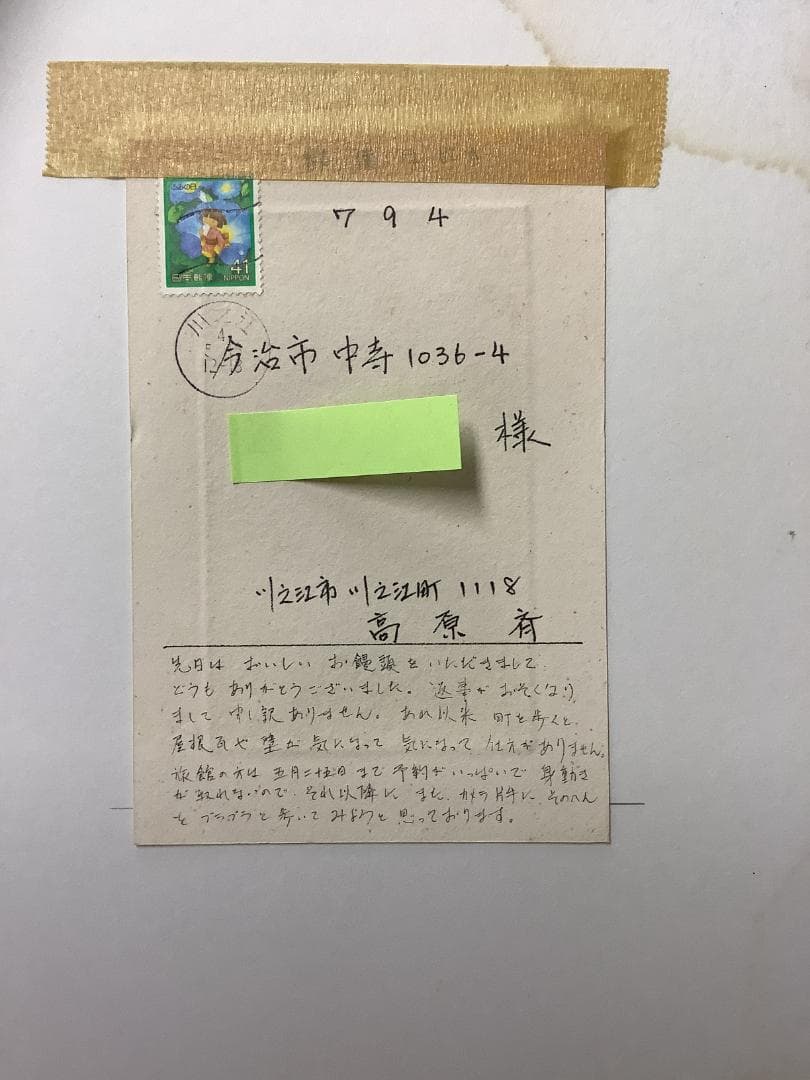 郵便はがき
ふみの日
日本郵便
41
NIPPON
7 9 4
川之江
今治市 中寺 1036-4
様
川之江市 川之江町 1118
高原 斉
先日は おいしい お饅頭を いただきまして
どうも ありがとうございました。 返事が おそくなり
まして 申し訳ありません。 あれ以来 町を歩くと、
屋根瓦や 壁が 気になって 気になって 仕方がありません。
旅館の方は 五月二十五日まで 予約がいっぱいで 身動き
が取れないので、それ以降に また カメラ片手に、そのへん
を ブラブラと歩いて みようと 思っております。